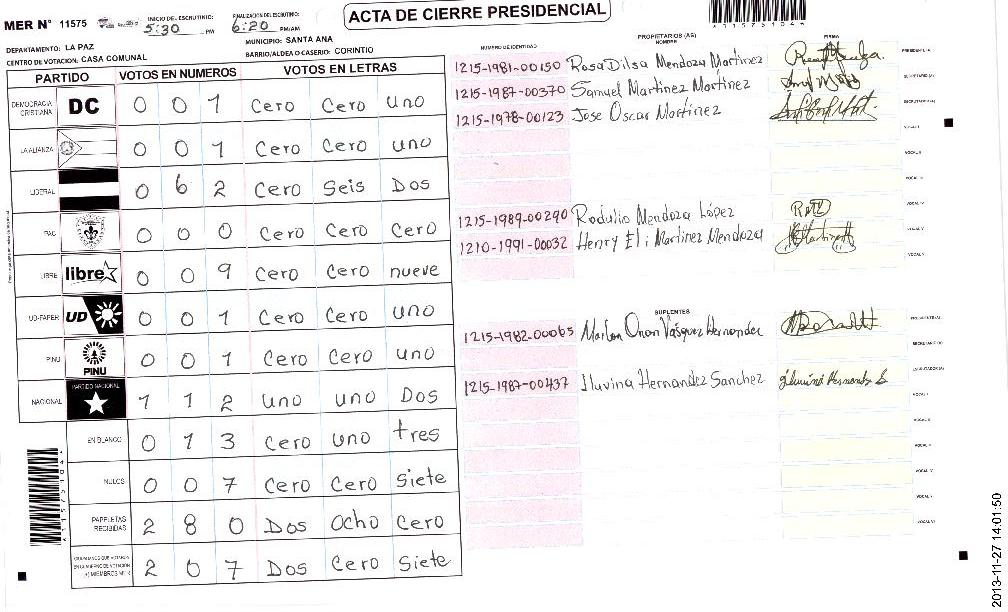 MER N° 11575
INICIO DEL ESCRUTINIO: 5:30 PM
FINALIZACION DEL ESCRUTINIO: 6:20 PM/AM
ACTA DE CIERRE PRESIDENCIAL
A1157510A1
DEPARTAMENTO: LA PAZ
MUNICIPIO: SANTA ANA
CENTRO DE VOTACION: CASA COMUNAL
BARRIO/ALDEA O CASERIO: CORINTIO
PARTIDO VOTOS EN NUMEROS VOTOS EN LETRAS
DEMOCRACIA CRISTIANA DC 0 0 1 Cero Cero uno
LA ALIANZA 0 0 1 Cero Cero uno
LIBERAL 0 6 2 Cero Seis Dos
PAC 0 0 0 Cero Cero Cero
LIBRE libre 0 0 9 Cero Cero nueve
UD-FAPER UD 0 0 1 Cero Cero uno
PINU PINU 0 0 1 Cero Cero uno
NACIONAL PARTIDO NACIONAL 1 1 2 uno uno Dos
EN BLANCO 0 1 3 Cero uno tres
NULOS 0 0 7 Cero Cero Siete
PAPELETAS RECIBIDAS 2 8 0 Dos Ocho Cero
CIUDADANOS QUE VOTARON EN CUADERNO DE VOTACION 2 0 7 Dos Cero Siete
NUMERO DE IDENTIDAD PROPIETARIOS (AS) NOMBRE FIRMA
1215-1981-00150 Rosa Dilsa Mendoza Martinez PRESIDENTE/A
1215-1987-00370 Samuel Martinez Martinez SECRETARIO(A)
1215-1978-00123 Jose Oscar Martinez ESCRUTADOR(A)
VOCAL I
VOCAL II
VOCAL III
1215-1989-00290 Rodulio Mendoza López VOCAL IV
1210-1991-00032 Henry Eli Martinez Mendoza VOCAL V
VOCAL VI
SUPLENTES
1215-1982-00065 Marlon Onan Vásquez Hernandez PRESIDENTE(A)
SECRETARIO(A)
1215-1987-00437 Iluvina Hernandez Sanchez ESCRUTADOR(A)
VOCAL I
VOCAL II
VOCAL III
VOCAL IV
VOCAL V
VOCAL VI
2013-11-27 14:01:50